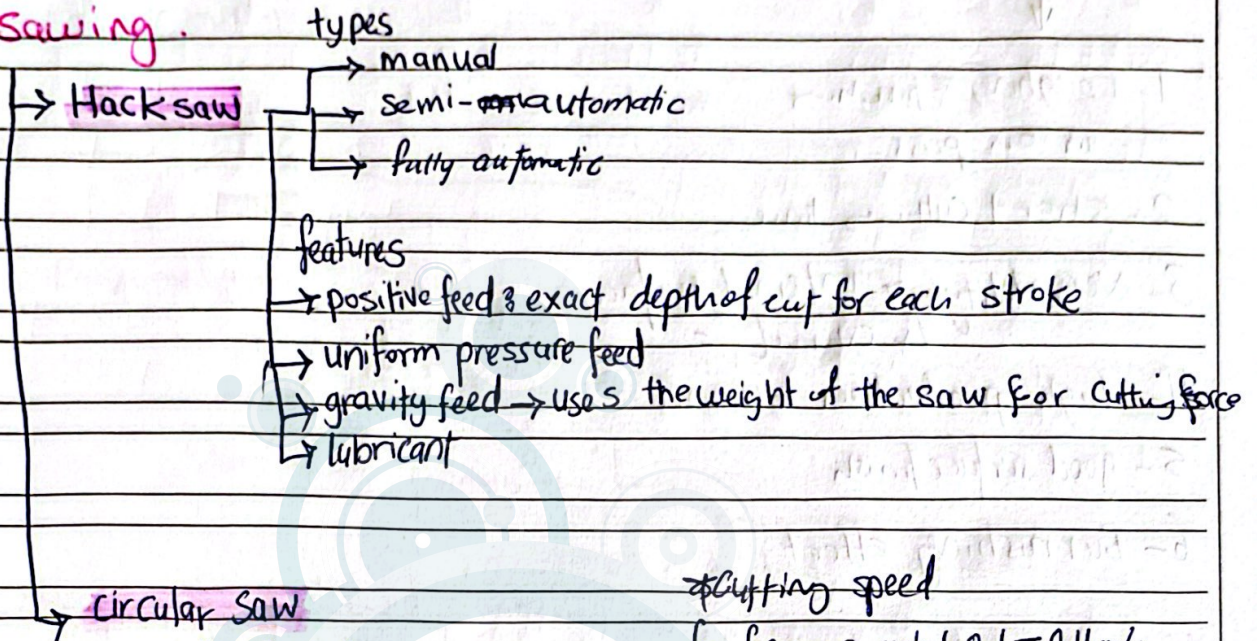 sawing.
types
→ manual
→ Hacksaw
→ semi-automatic
→ fully automatic
features
→ positive feed & exact depth of cut for each stroke
→ uniform pressure feed
→ gravity feed → uses the weight of the saw for cutting force
→ lubricant
*cutting speed
→ circular saw